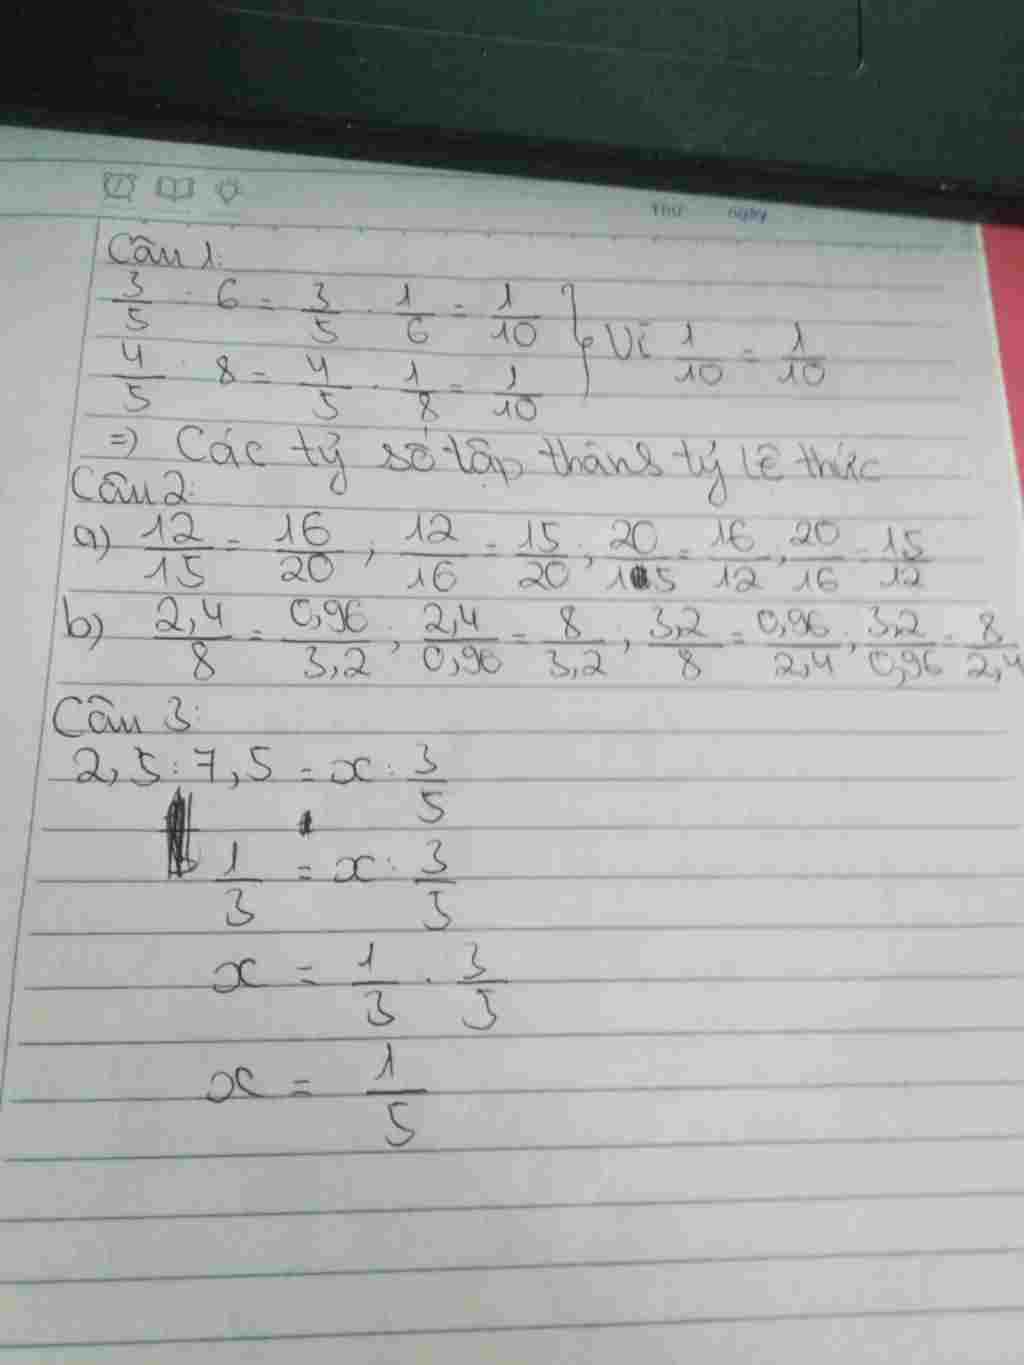 Thứ ngày
Câu 1:
3/5 : 6 = 3/5 . 1/6 = 1/10 } Vì 1/10 = 1/10
4/5 : 8 = 4/5 . 1/8 = 1/10
=) Các tỷ số lập thành tỷ lệ thức
Câu 2:
a) 12/15 = 16/20 ; 12/16 = 15/20 ; 20/15 = 16/12 ; 20/16 = 15/12
b) 2,4/8 = 0,96/3,2 ; 2,4/0,96 = 8/3,2 ; 3,2/8 = 0,96/2,4 ; 3,2/0,96 = 8/2,4
Câu 3:
2,5 : 7,5 = x : 3/5
1/3 = x : 3/5
x = 1/3 . 3/5
x = 1/5